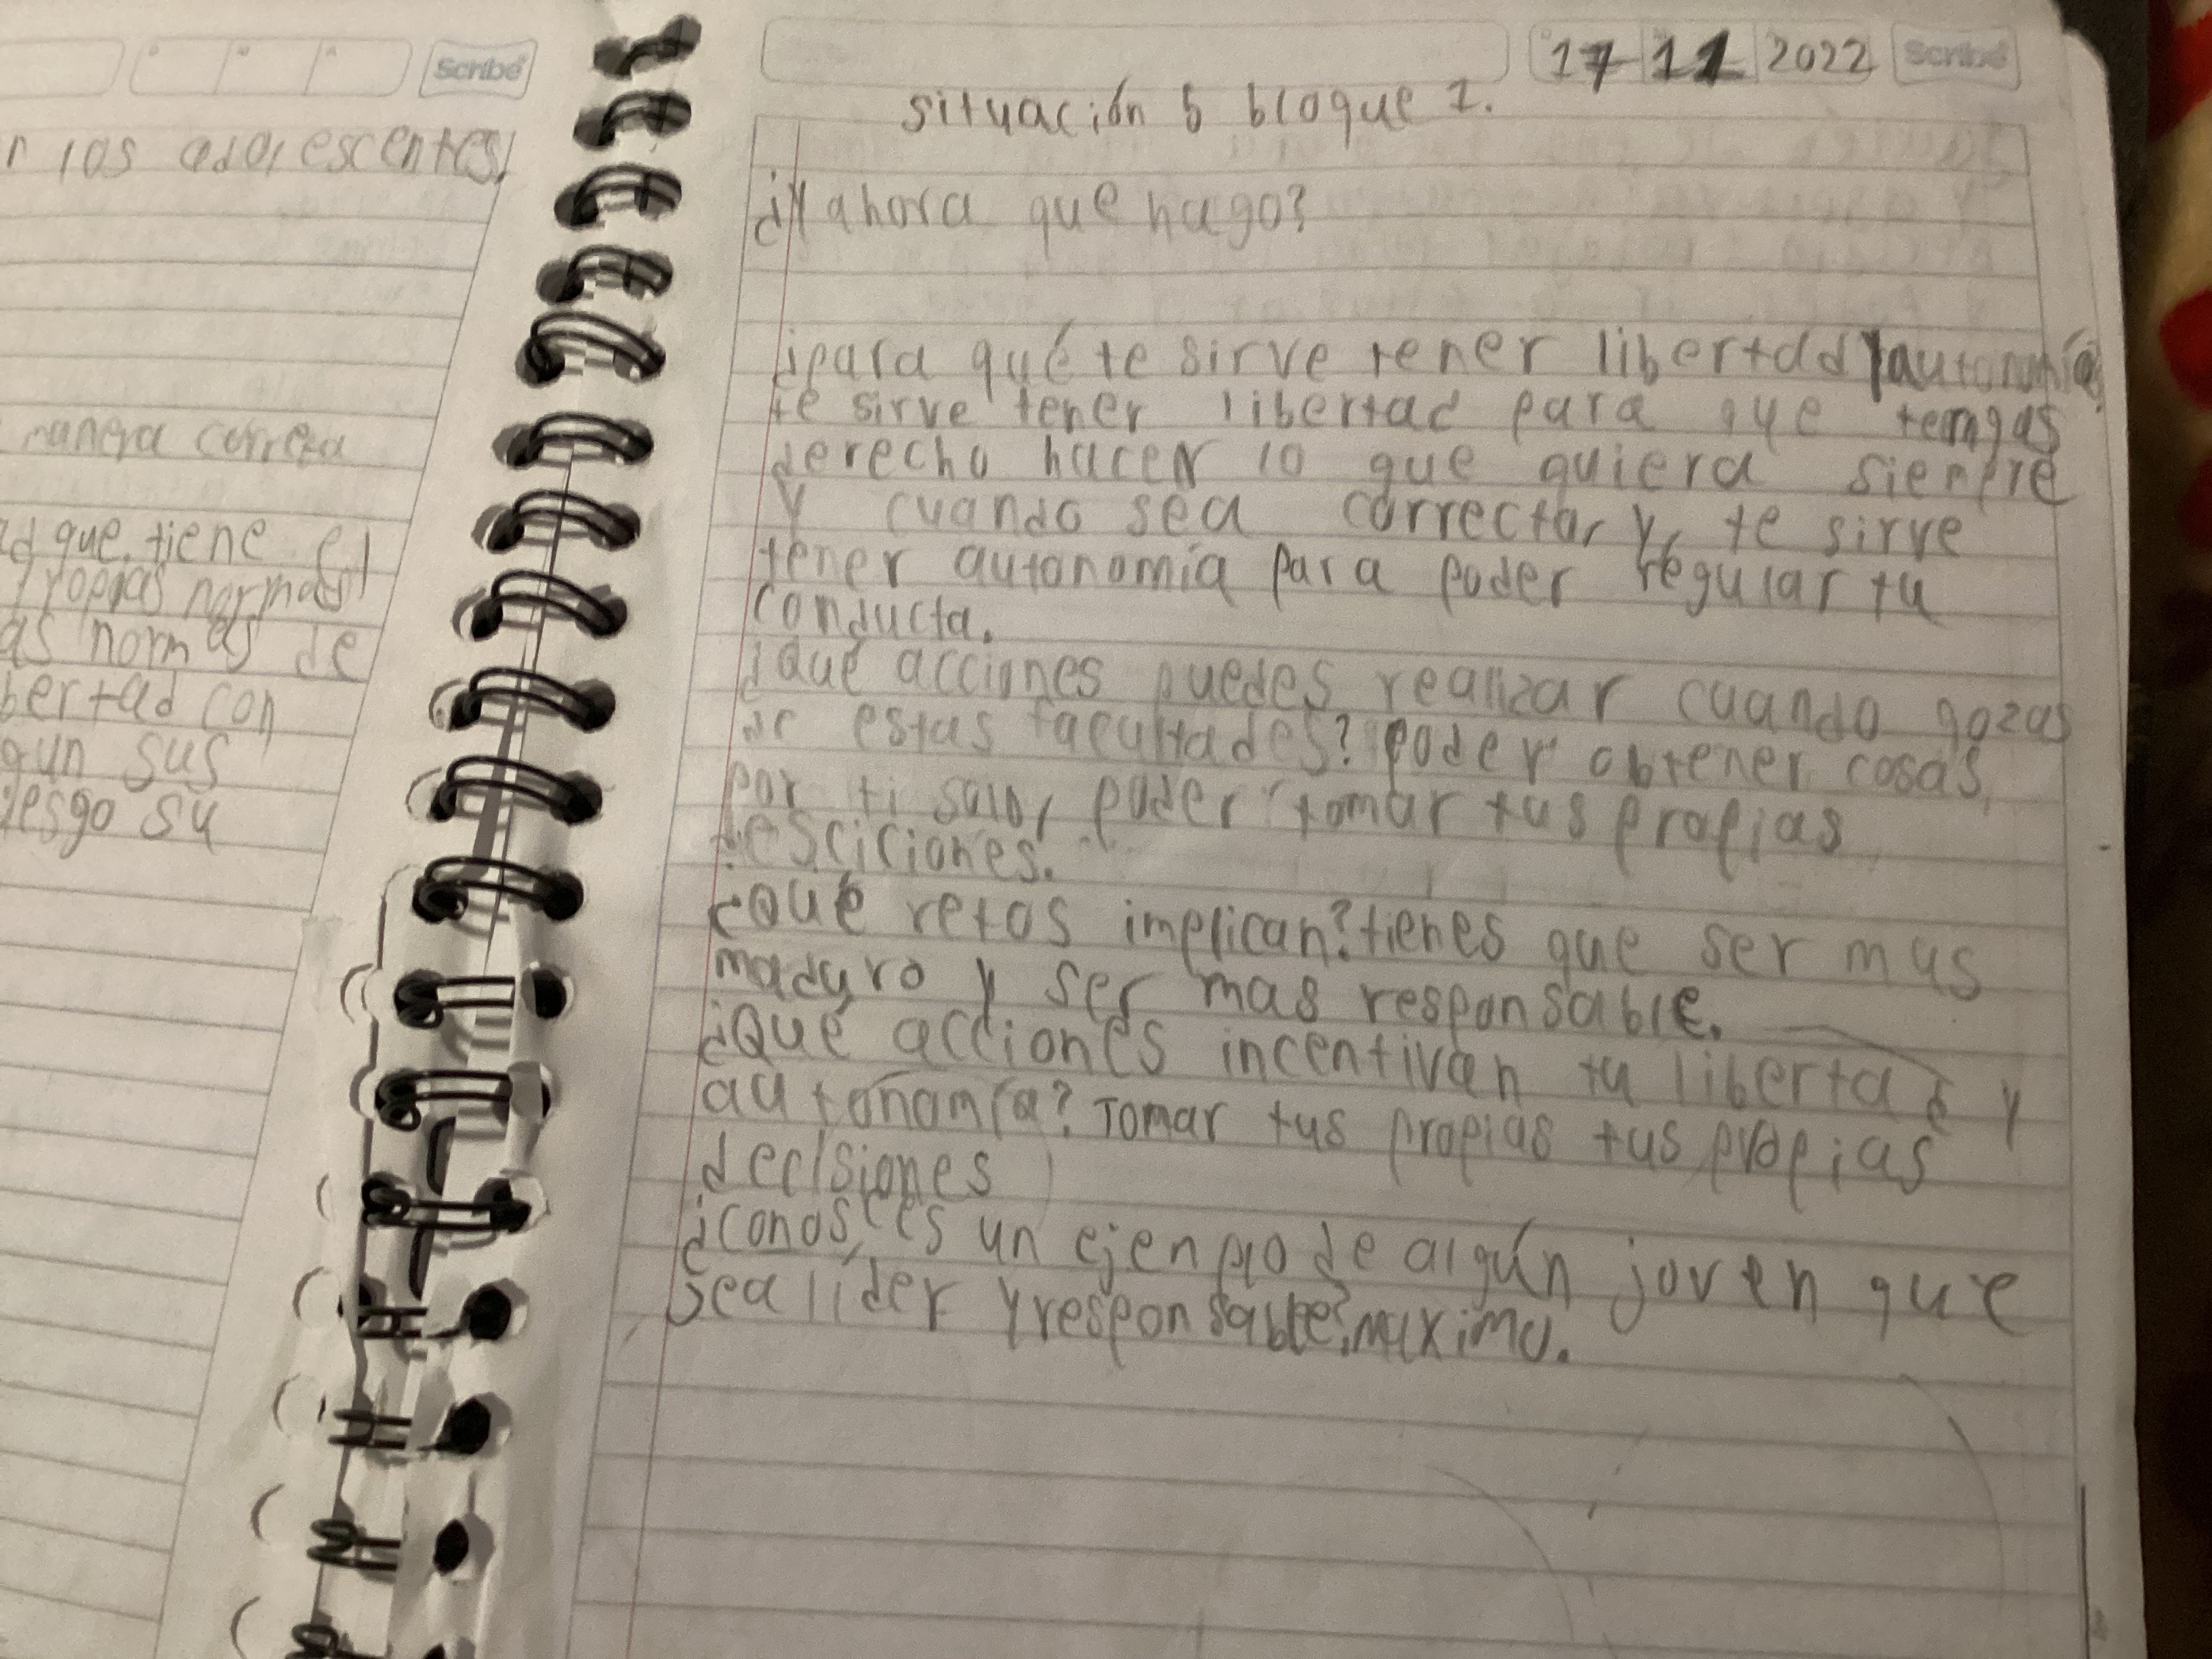 Scribe
n los adolescentes.
manera correta
ad que tiene el
propias normas
as normas de
bertad con
gun sus
iesgo su
17 11 2022 Scribe
situación 5 bloque 1.
¿Y ahora que hago?
¿para qué te sirve tener libertad y autonomía
te sirve tener libertad para que tengas
derecho hacer lo que quiera siempre
y cuando sea correcto, y, te sirve
tener autonomía para poder regular tu
conducta.
¿Qué acciones puedes realizar cuando gozas
de estas facultades? poder obtener cosas
por ti solo, poder tomar tus propias
desciciones.
¿Qué retos implican? tienes que ser mas
maduro y ser mas responsable.
¿Qué acciones incentivan tu libertad y
autonomía? Tomar tus propias tus propias
decisiones
¿conosces un ejenplo de algún joven que
sea líder y responsable? maximo.